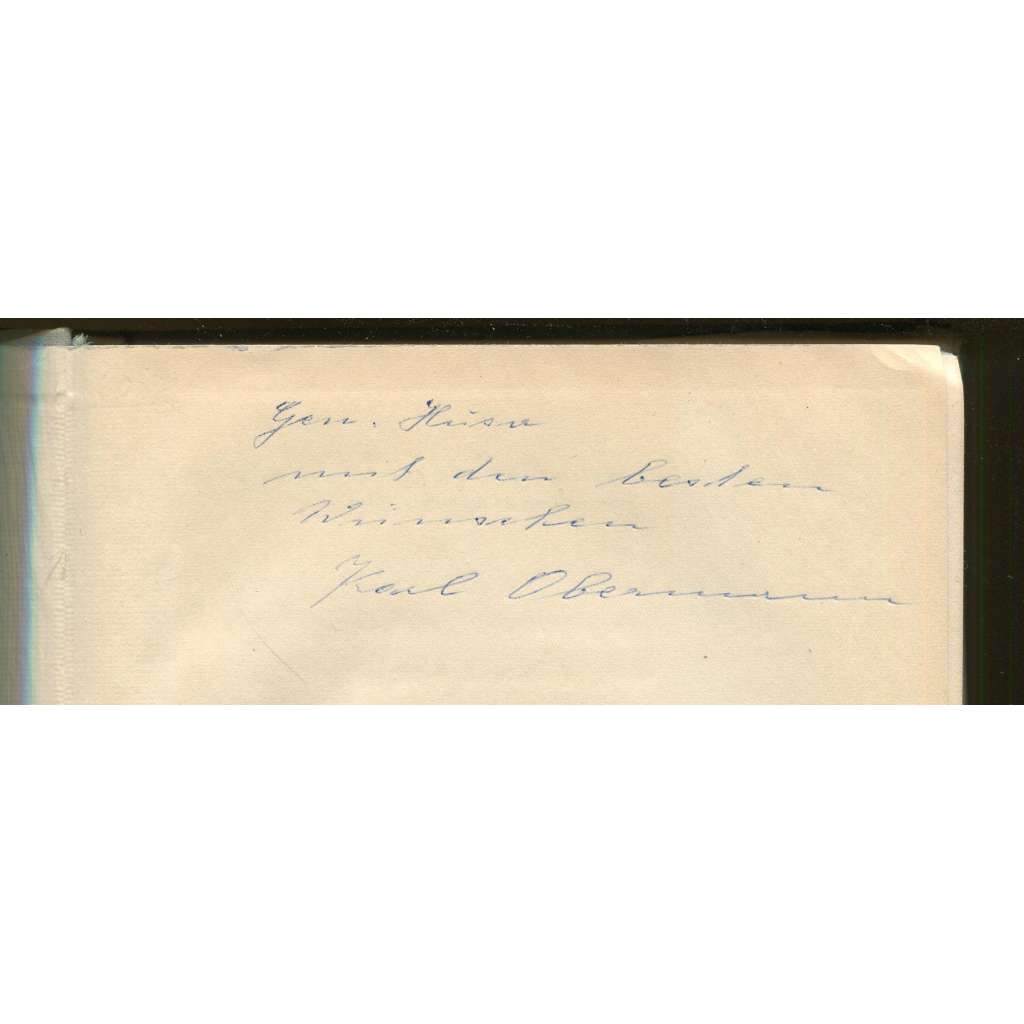 Gen. Húsa
mit den besten
Wünschen
Karl Obermann